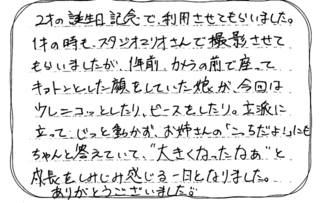 2才の誕生日記念で、利用させてもらいました。
1才の時も、スタジオマリオさんで撮影させて
もらいましたが、1年前、カメラの前で座って
キョトンとした顔をしていた娘が、今回は
ウレシニコッとしたり、ピースをしたり。立派に
立って、じっと動かず、お姉さんの「こっちだよ!」にも
ちゃんと答えていて、"大きくなったなぁ"と
成長をしみじみ感じる一日となりました。
ありがとうございました。